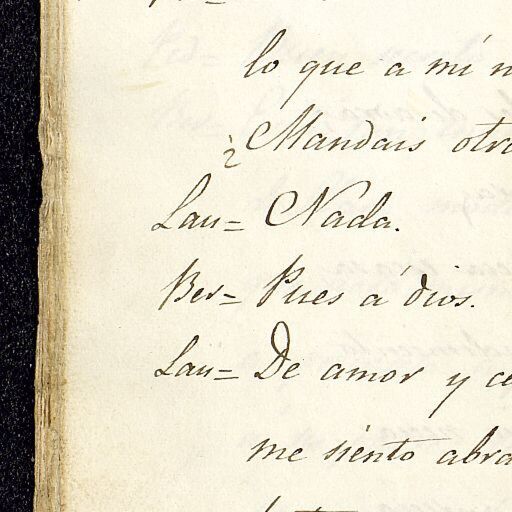 lo que a mí
¿Mandais otr
Lau= Nada.
Ber= Pues a dios.
Lau= De amor y ce
me siento abra